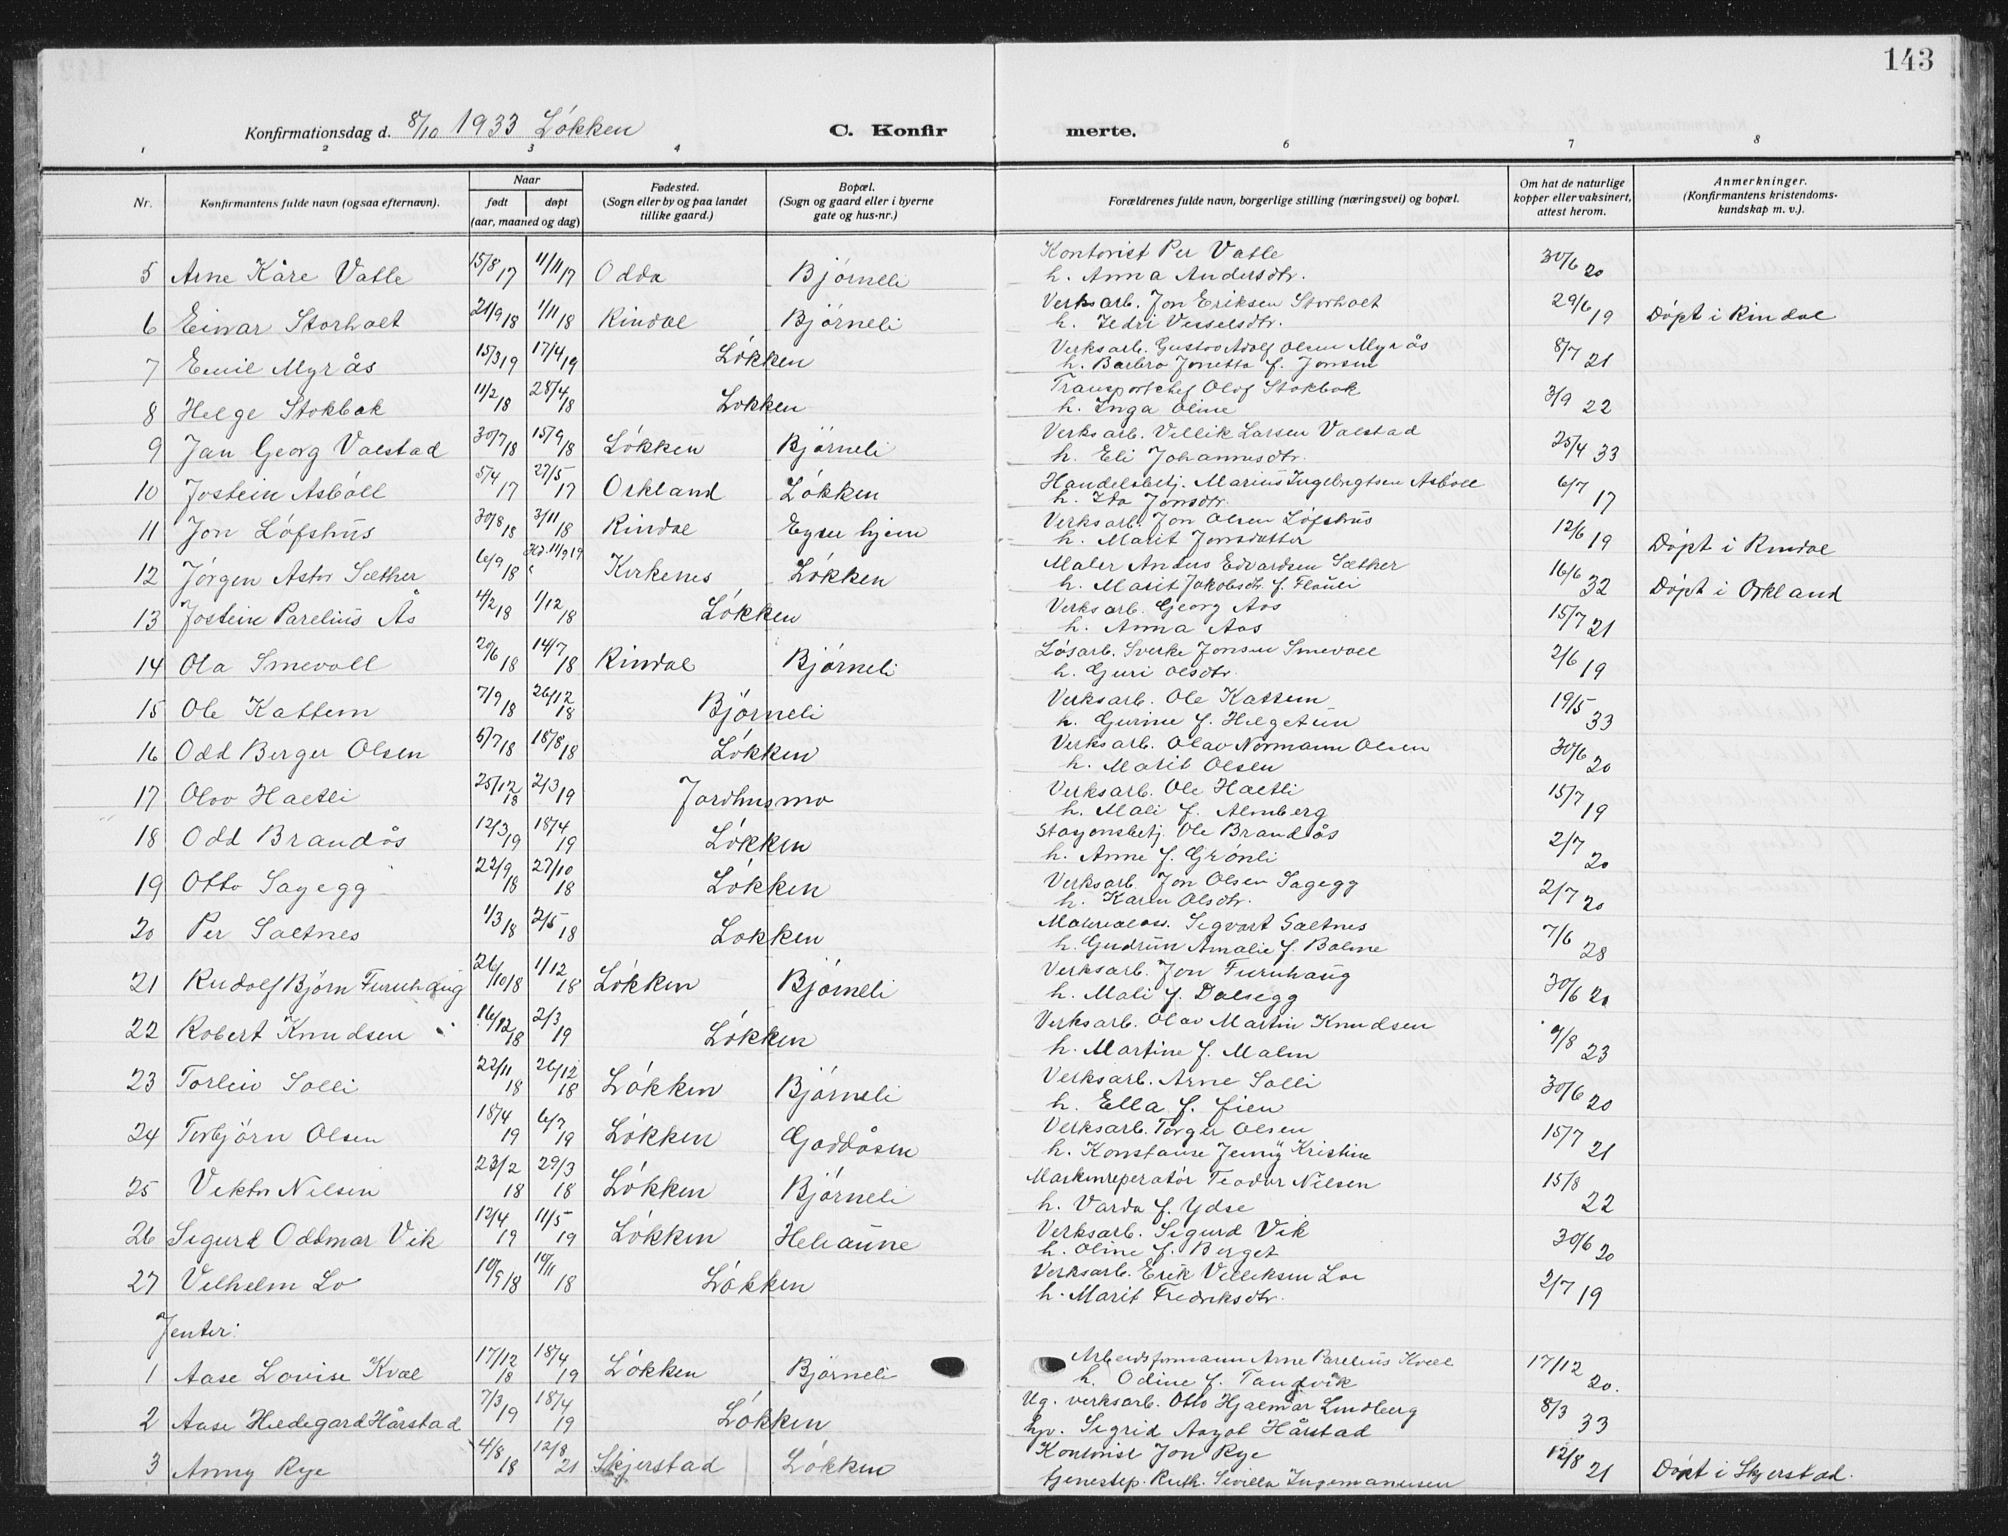 143
Konfirmationsdag d. 8/10 1933 Løkken C. Konfirmerte.
1 2 3 4 6 7 8
Nr. Konfirmantens fulde navn (ogsaa efternavn). Naar født døpt (aar, maaned og dag) Fødested. (Sogn eller by og paa landet tillike gaard.) Bopæl. (Sogn og gaard eller i byerne gate og hus-nr.) Forældrenes fulde navn, borgerlige stilling (næringsvei) og bopæl. Om hat de naturlige kopper eller vaksinert, attest herom. Anmerkninger. (Konfirmantens kristendomskundskap m. v.).
5 Arne Kåre Vatle 15/8 17 11/11 17 Odda Bjørneli Kontorist Per Vatle 30/6 20
h. Anna Andersdtr.
6 Einar Storholt 21/9 18 1/11 18 Rindal Bjørneli Verksarb. Jon Eriksen Storholt 29/6 19 Døpt i Rindal
h. Vesselsdtr.
7 Emil Myrås 15/3 19 17/4 19 Løkken Verksarb. Gustav Adolf Olsen Myrås 8/7 21
h. Barbro Jonetta f. Jonsen
8 Helge Stokbak 11/2 18 28/4 18 Løkken Transportchef Olof Stokbak 3/9 22
h. Inga Oline
9 Jan Georg Valstad 30/7 18 15/9 18 Løkken Bjørneli Verksarb. Villik Larsen Valstad 25/4 33
h. Eli Johannesdtr.
10 Jostein Asbøll 5/4 17 27/5 17 Orkland Løkken Handelsbetj. Marius Ingebrigtsen Asbøll 6/7 17
h. Ida Jonsdtr.
11 Jon Løfshus 30/8 18 3/11 18 Rindal Eget hjem Verksarb. Jon Olsen Løfshus 12/6 19 Døpt i Rindal
h. Marit Jonsdatter
12 Jørgen Astor Sæther 6/9 18 Hd. 11/9 19 Kirkenes Løkken Maler Anders Edvardsen Sæther 16/6 32 Døpt i Orkland
h. Marit Jakobsdtr. f.
13 Jostein Parelius Ås 4/2 18 1/12 18 Løkken Verksarb. Georg Aas 15/7 21
h. Anna Aas
14 Ola Smevoll 20/6 18 14/7 18 Rindal Bjørneli Løsarb. Sverke Jonsen Smevoll 2/6 19
h. Guri Olsdtr.
15 Ole Kattem 7/9 18 26/12 18 Bjørneli Verksarb. Ole Kattem 19/5 33
h. Gurine f. Helgetun
16 Odd Berger Olsen 5/7 18 18/8 18 Løkken Verksarb. Olav Normann Olsen 30/6 20
h. Marit Olsen
17 Olav Haltli 25/12 18 2/3 19 Jordhusmo Verksarb. Ole Haltli 15/7 19
h. Mali f. Almberg
18 Odd Brandås 12/3 19 18/4 19 Løkken Stasjonsbetj. Ole Brandås 2/7 20
h. Anne f. Grønli
19 Otto Sagegg 22/9 18 27/10 18 Løkken Verksarb. Jon Olsen Sagegg 2/7 20
h. Karen Olsdtr.
20 Per Saltnes 1/3 18 2/5 18 Løkken Materialass. Sigvart Saltnes 7/6 28
h. Gudrun Amalie f. Bolme
21 Rudolf Bjørn Furuhaug 26/10 18 1/12 18 Løkken Bjørneli Verksarb. Jon Furuhaug 30/6 20
h. Mali f. Dalsegg
22 Robert Knudsen 16/12 18 2/3 19 Løkken Verksarb. Olav Martin Knudsen 9/8 23
h. Martine f. Malm
23 Torleiv Solli 22/11 18 26/12 18 Løkken Bjørneli Verksarb. Arne Solli 30/6 20
h. Ella f. Lien
24 Torbjørn Olsen 18/4 19 6/7 19 Løkken Goddåsen Verksarb. Torger Olsen 15/7 21
h. Konstanse Jenny Kristine
25 Viktor Nilsen 23/2 18 29/3 18 Løkken Bjørneli Maskinreperatør Teodor Nilsen 15/8 22
h. Varda f. Ydse
26 Sigurd Oddmar Vik 12/4 19 11/5 19 Løkken Heliaune Verksarb. Sigurd Vik 30/6 20
h. Oline f. Berget
27 Vilhelm Lo 10/9 18 10/11 18 Løkken Verksarb. Erik Villiksen Loe 2/7 19
h. Marit Fredriksdtr.
Jenter:
1 Aase Lovise Kvål 17/12 18 18/4 19 Løkken Bjørneli Arbeidsformann Arne Parelius Kvål 17/12 20.
h. Odine f. Tandvik
2 Aase Hildegard Hårstad 7/3 19 18/4 19 Løkken Ug. verksarb. Otto Hjalmar Lindberg 8/3 33
Sigrid Aagot Hårstad
3 Anny Rye 4/8 18 12/8 21 Skjerstad Løkken Kontorist Jon Rye 12/8 21 Døpt i Skjerstad.
tjenestep. Ruth Sevilla Ingemannsen